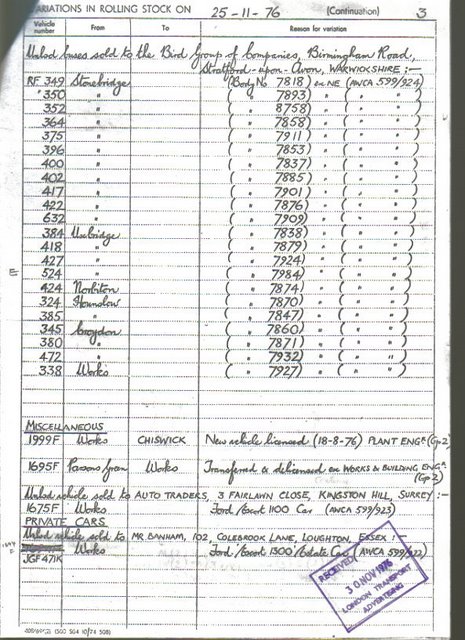 VARIATIONS IN ROLLING STOCK ON 25-11-76 (Continuation) 3
Vehicle number From To Reason for variation
Unlsd buses sold to the Bird Group of Companies, Birmingham Road,
Stratford-upon-Avon, WARWICKSHIRE :-
RF 349 Stonebridge (Body No 7818) ex NE (AWCA 599/924)
" 350 " ( " 7893) " ( " " )
352 " ( " 8758) " ( " " )
364 " ( " 7858) " ( " " )
375 " ( " 7911) " ( " " )
396 " ( " 7853) " ( " " )
400 " ( " 7837) " ( " " )
402 " ( " 7885) " ( " " )
417 " ( " 7901) " ( " " )
422 " ( " 7876) " ( " " )
632 " ( " 7909) " ( " " )
384 Uxbridge ( " 7838) " ( " " )
418 " ( " 7879) " ( " " )
427 " ( " 7924) " ( " " )
E 524 " ( " 7984) " ( " " )
424 Norbiton ( " 7874) " ( " " )
324 Hounslow ( " 7870) " ( " " )
385 " ( " 7847) " ( " " )
345 Croydon ( " 7860) " ( " " )
380 " ( " 7871) " ( " " )
472 " ( " 7932) " ( " " )
338 Works ( " 7927) " ( " " )
MISCELLANEOUS
1999F Works CHISWICK New vehicle licensed (18-8-76) PLANT ENGR (Gp 2)
1695F Parsons Green Works Transferred & delicensed ex WORKS & BUILDING ENGR
(Gp 2)
Unlsd vehicle sold to AUTO TRADERS, 3 FAIRLAWN CLOSE, KINGSTON HILL, SURREY :-
1675F Works Ford/Escort 1100 Car (AWCA 599/923)
PRIVATE CARS
Unlsd vehicle sold to MR BANHAM, 102, COLEBROOK LANE, LOUGHTON, ESSEX :-
Works Ford/Escort 1300/Estate Car (AWCA 599/922)
JGF 471K
RECEIVED
30 NOV 1976
LONDON TRANSPORT
ADVERTISING